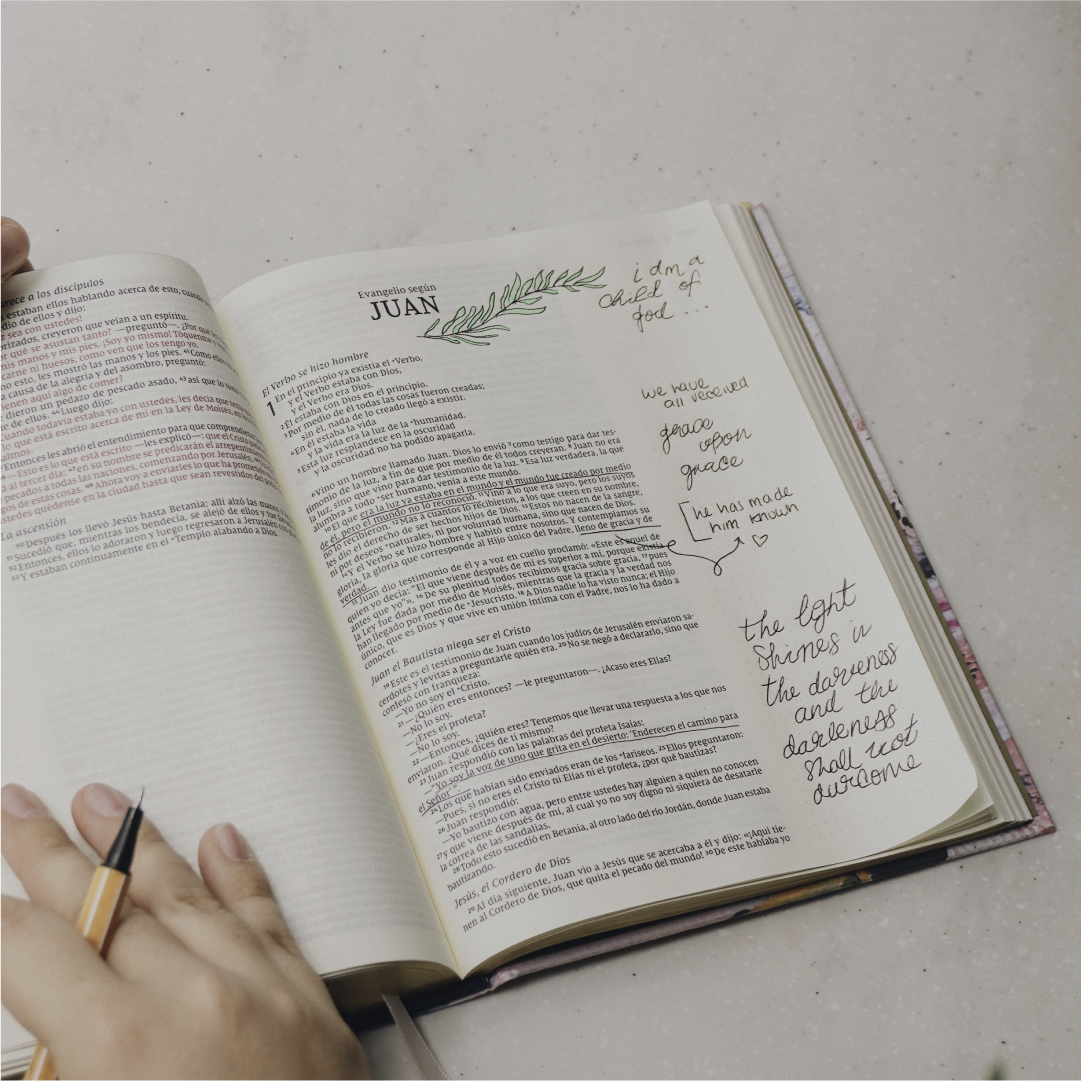 rece a los discípulos
estaban ellos hablando acerca de esto, cuando
dio de ellos y dijo:
z sea con ustedes!
orizados, creyeron que veían a un espíritu.
or qué se asustan tanto? —preguntó—. ¿Por qué
mis manos y mis pies. ¡Soy yo mismo! Tóquenme y
carne ni huesos, como ven que los tengo yo.
ho esto, les mostró las manos y los pies. ⁴¹ Como ellos
a causa de la alegría y del asombro, preguntó:
ienen aquí algo de comer?
dieron un pedazo de pescado asado, ⁴³ así que lo
te de ellos. ⁴⁴ Luego dijo:
Cuando todavía estaba yo con ustedes, les decía que tenía
lo que está escrito acerca de mí en la Ley de Moisés, en
lmos.
Entonces les abrió el entendimiento para que comprendier
—Esto es lo que está escrito —les explicó—: que el Cristo
á al tercer día, ⁴⁷ y en su nombre se predicarán el arrepentimien
pecados a todas las naciones, comenzando por Jerusalén.
gos de estas cosas. ⁴⁹ Ahora voy a enviarles lo que ha prometido
stedes quédense en la ciudad hasta que sean revestidos del
La ascensión
⁵⁰ Después los llevó Jesús hasta Betania; allí alzó las manos
⁵¹ Sucedió que, mientras los bendecía, se alejó de ellos y fue
⁵² Entonces, ellos lo adoraron y luego regresaron a Jerusalén
⁵³ Y estaban continuamente en el *Templo alabando a Dios.
Evangelio según
JUAN
El Verbo se hizo hombre
1 En el principio ya existía el *Verbo,
y el Verbo estaba con Dios,
y el Verbo era Dios.
² Él estaba con Dios en el principio.
³ Por medio de él todas las cosas fueron creadas;
sin él, nada de lo creado llegó a existir.
⁴ En él estaba la vida
y la vida era la luz de la *humanidad.
⁵ Esta luz resplandece en la oscuridad
y la oscuridad no ha podido apagarla.
⁶ Vino un hombre llamado Juan. Dios lo envió ⁷ como testigo para dar tes-
timonio de la luz, a fin de que por medio de él todos creyeran. ⁸ Juan no era
la luz, sino que vino para dar testimonio de la luz. ⁹ Esa luz verdadera, la que
alumbra a todo *ser humano, venía a este mundo.
¹⁰ El que era la luz ya estaba en el mundo y el mundo fue creado por medio
de él, pero el mundo no lo reconoció. ¹¹ Vino a lo que era suyo, pero los suyos
no lo recibieron. ¹² Mas a cuantos lo recibieron, a los que creen en su nombre,
les dio el derecho de ser hechos hijos de Dios. ¹³ Estos no nacen de la sangre,
ni por deseos *naturales, ni por voluntad humana, sino que nacen de Dios.
¹⁴ Y el Verbo se hizo hombre y habitó entre nosotros. Y contemplamos su
gloria, la gloria que corresponde al Hijo único del Padre, lleno de gracia y de
verdad.
¹⁵ Juan dio testimonio de él y a voz en cuello proclamó: «Este es aquel de
quien yo decía: "El que viene después de mí es superior a mí, porque existía
antes que yo"». ¹⁶ De su plenitud todos recibimos gracia sobre gracia, ¹⁷ pues
la Ley fue dada por medio de Moisés, mientras que la gracia y la verdad nos
han llegado por medio de *Jesucristo. ¹⁸ A Dios nadie lo ha visto nunca; el Hijo
único, que es Dios y que vive en unión íntima con el Padre, nos lo ha dado a
conocer.
Juan el Bautista niega ser el Cristo
¹⁹ Este es el testimonio de Juan cuando los judíos de Jerusalén enviaron sa-
cerdotes y levitas a preguntarle quién era. ²⁰ No se negó a declararlo, sino que
confesó con franqueza:
—Yo no soy el *Cristo.
²¹ —¿Quién eres entonces? —le preguntaron—. ¿Acaso eres Elías?
—No lo soy.
—¿Eres el profeta?
—No lo soy.
²² —Entonces, ¿quién eres? Tenemos que llevar una respuesta a los que nos
enviaron. ¿Qué dices de ti mismo?
²³ Juan respondió con las palabras del profeta Isaías:
—"Yo soy la voz de uno que grita en el desierto: 'Enderecen el camino para
el Señor'".
²⁴ Los que habían sido enviados eran de los *fariseos. ²⁵ Ellos preguntaron:
—Pues, si no eres el Cristo ni Elías ni el profeta, ¿por qué bautizas?
²⁶ Juan respondió:
—Yo bautizo con agua, pero entre ustedes hay alguien a quien no conocen
²⁷ y que viene después de mí, al cual yo no soy digno ni siquiera de desatarle
la correa de las sandalias.
²⁸ Todo esto sucedió en Betania, al otro lado del río Jordán, donde Juan estaba
bautizando.
Jesús, el Cordero de Dios
²⁹ Al día siguiente, Juan vio a Jesús que se acercaba a él y dijo: «¡Aquí tie-
nen al Cordero de Dios, que quita el pecado del mundo! ³⁰ De este hablaba yo
i am a
child of
god ...
we have
all received
grace
upon
grace
he has made
him known
the light
shines in
the darkness
and the
darkness
shall not
overcome